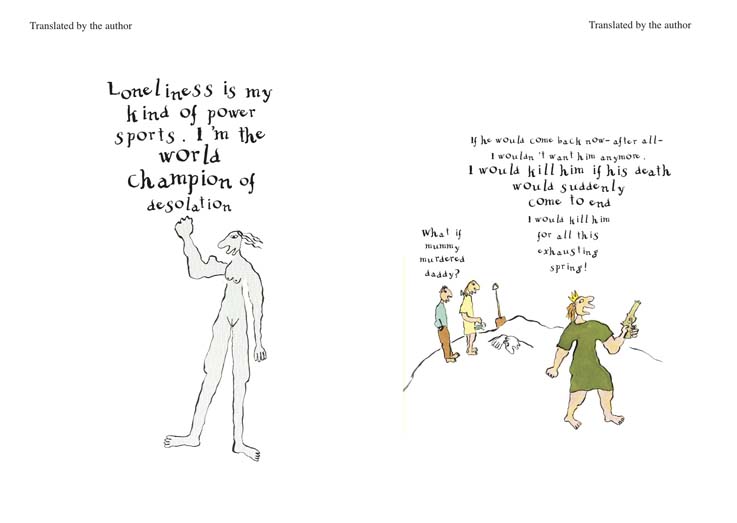 Translated by the author
Loneliness is my
kind of power
sports. I'm the
world
champion of
desolation
Translated by the author
If he would come back now- after all-
I wouldn't want him anymore.
I would kill him if his death
would suddenly
come to end
I would kill him
for all this
exhausting
spring!
What if
mummy
murdered
daddy?